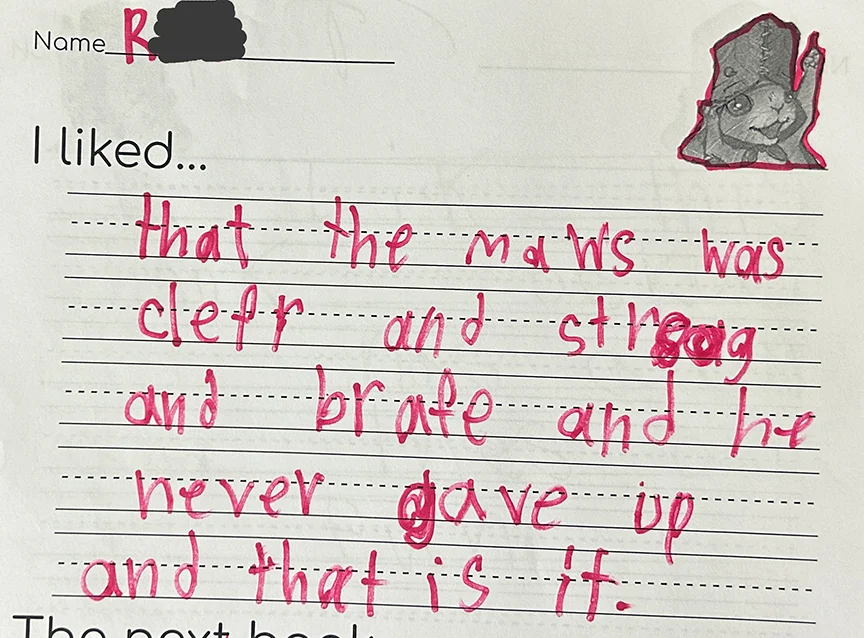 Name R
I liked...
that the maws was
clefr and strong
and brafe and he
never gave up
and that is it.
The next book